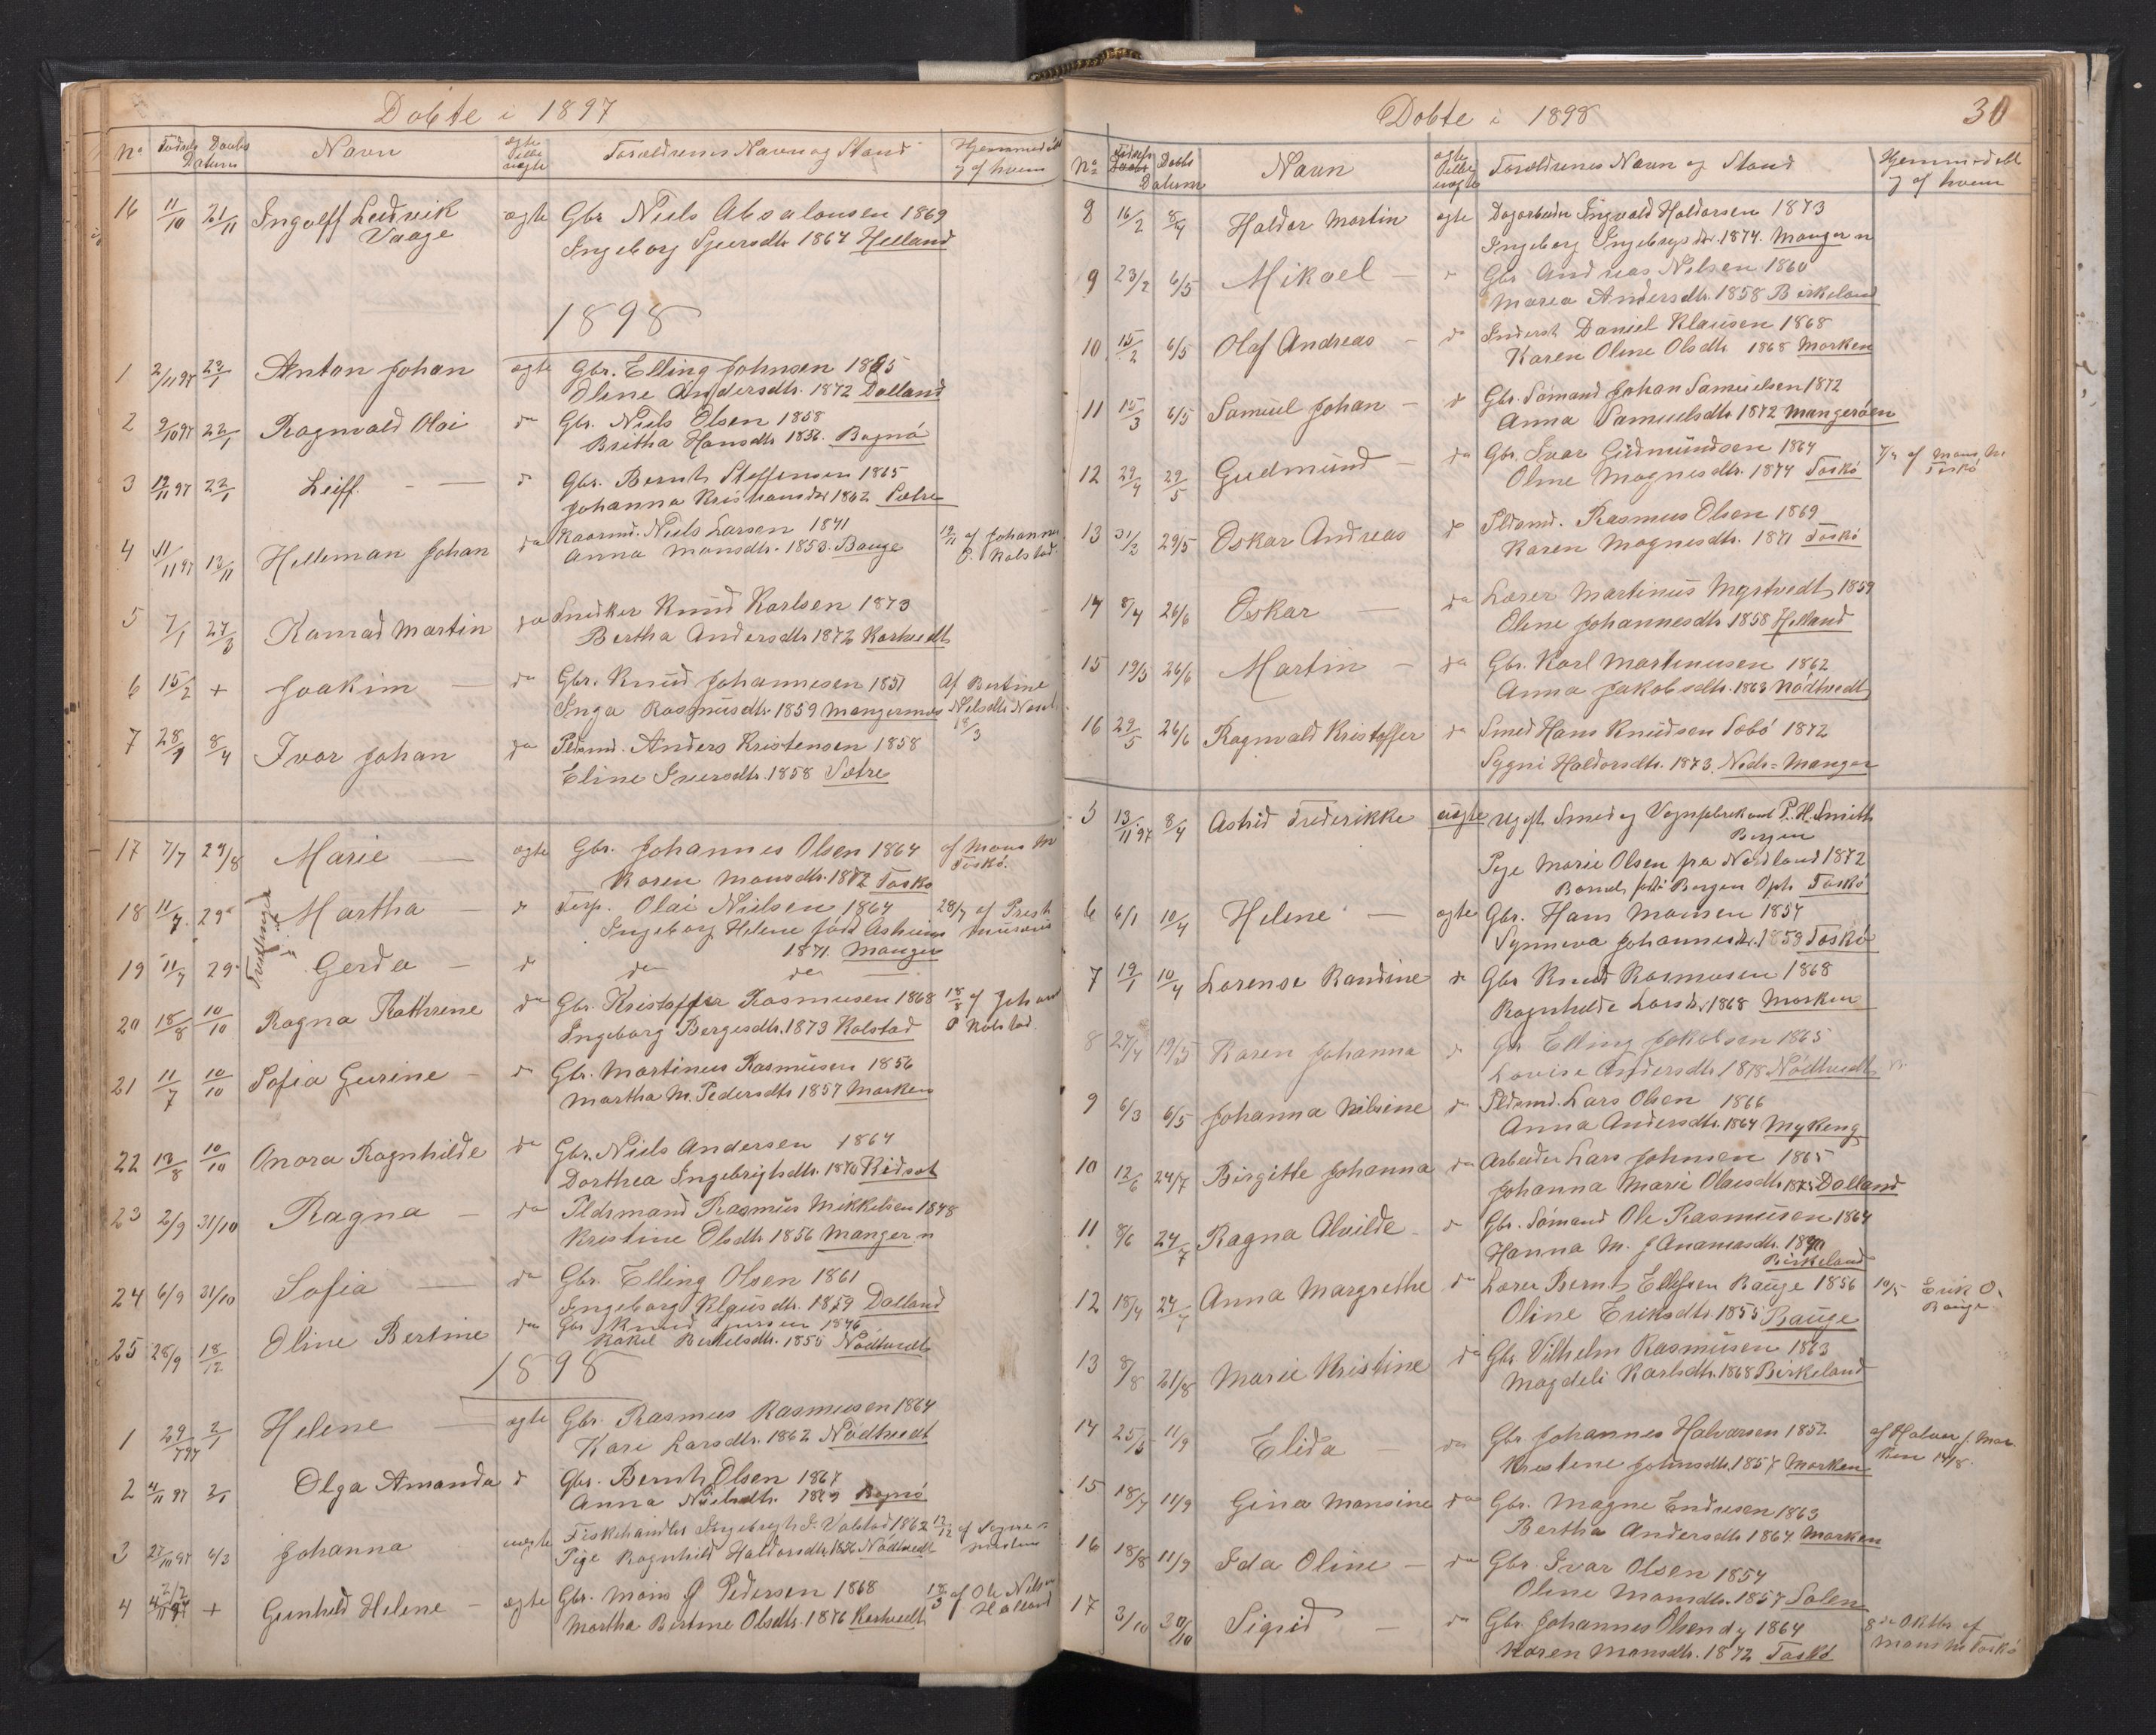 Døbte i 1897
No Fødsels Daabs Datum Navn ægte eller uægte Forældrenes Navn og Stand Hjemmedøbt og af hvem
16 11/10 21/11 Ingolff Ludvik ægte Gbr Niels Absalonsen 1869
Vaage Ingeborg Sjursdtr 1864 Helland
1898
1 2/11 97 23/1 Anton Johan ægte Gbr. Elling Johnsen 1865
Oline Andersdtr. 1872 Dalland
2 9/10 97 23/1 Ragnvald Olai do Gbr. Niels Olsen 1858
Britha Hansdtr 1856. Bognø
3 19/11 97 23/1 Leiff - d Gbr. Bernh Steffensen 1865
Johanna Kristiansdtr 1862 Sætre
4 11/11 97 13/11 Helleman Johan do Kaarmd. Niels Larsen 1841 19/11 af Johannes
Anna Monsdtr. 1853. Bauge P. Kolstad
5 7/1 27/3 Konrad Martin do Snedker Knud Karlsen 1873
Bertha Andersdtr 1872 Kartvedt
6 15/2 + Joakim do Gbr. Knud Johannesen 1851 Af Bertine
Inga Rasmusdtr. 1859 Mangermas Nilsdtr
18/3
7 28/1 8/4 Ivar Johan do Pldsmd. Anders Kristensen 1858
Eline Iversdtr. 1858 Sætre
17 7/7 29/8 Marie ægte Gbr. Johannes Olsen 1864 af Mons M
Karen Monsdtr. 1872 Toskø Toskø.
18 11/7 29 Tvillinger Martha d Olai Nielsen 1864 28/7 af Prest
Ingeborg Helene født
1871. Manger
19 11/7 29 Gerda d do do
20 18/8 10/10 Ragna Kathrine do Gbr. Kristoffer Rasmussen 1868 18/8 af Johan
Ingeborg Bergesdtr. 1873 Kolstad P Kolstad.
21 11/7 10/10 Sofia Gurine d Gbr. Martinus Rasmusen 1856
Martha M. Pedersdtr 1857 Marken
22 13/8 10/10 Onora Ragnhilde do Gbr. Niels Andersen 1864
Dorthea Ingebrigtsdtr. 1870 Ridsat
23 2/9 31/10 Ragna do Pldsmand Rasmus Mikkelsen 1848
Kristine Olsdtr 1856 Manger n
24 6/9 31/10 Sofia do Gbr. Elling Olsen 1861
Ingeborg Klausdtr. 1859 Dalland
25 28/9 18/12 Oline Bertine do Gbr Knud 1846
Rakel Bertelsdtr. 1855 Nødtvedt
1898
1 29/7 97 2/1 Helene ægte Gbr. Rasmus Rasmusen 1864
Kari Larsdtr. 1862 Nødtvedt
2 4/11 97 2/1 Olga Amanda d Gbr. Bernh Olsen 1867
Anna Nielsdtr. 1869 Bognø
3 27/10 97 6/3 Johanna uægte Fiskehandler Ingebregt J. Valstad 1862 13/12 af
Pige Ragnhild Haldorsdtr 1856 Nødtvedt
4 + Gunhild Helene ægte Gbr. Mons Pedersen 1868 18/3 af Ole Nilsen
Martha Bertine Olsdtr. 1876 Kartvedt Helland
Døbte i 1898 30
No Fødsels Døbte Datum Navn ægte eller uægte Forældrenes Navn og Stand Hjemmedøbt og af hvem
8 16/2 8/4 Haldor Martin ægte Dagarbeider Ingvald Haldorsen 1873
Ingeborg Ingebrgsdtr. 1874. Manger n
9 23/2 6/5 Mikael d Gbr Andreas Nilsen 1860
Maria Andersdtr. 1858 Birkeland
10 15/2 6/5 Olaf Andreas do Inderst Daniel Klausen 1868
Karen Oline Olsdtr 1868 Marken
11 15/3 6/5 Samuel Johan d Gbr. Sømand Johan Samuelsen 1872
Anna Samuelsdtr 1872 Mangerøen
12 29/4 29/5 Gudmund do Gbr. Ivar Gudmundsen 1864 af Mons M
Oline Magnesdtr. 1874 Toskø Toskø
13 31/3 29/5 Oskar Andreas d Pldsmd. Rasmus Olsen 1869
Karen Magnesdtr. 1871 Toskø
14 8/4 26/6 Oskar do Lærer Martinus Myrtvedt, 1859
Oline Johannesdtr 1858 Helland
15 19/5 26/6 Martin do Gbr. Karl Martinusen 1862
Anna Jakobsdtr. 1863 Nødtvedt
16 29/5 26/6 Ragnvald Kristoffer do Smed Hans Knudsen Søbø 1872
Sygni Haldorsdtr. 1873. Nedr=Manger
5 13/11 97 8/4 Astrid Frederikke uægte Ugift Smed og Vognfabrikant P. H. Smith
Bergen
Pige Marie Olsen fra Nordland 1872
Barnet født i Bergen Oph. Toskø
6 6/1 10/4 Helene ægte Gbr. Hans Monsen 1854
Synneva Johannesdtr. 1859 Toskø
7 19/1 10/4 Lorense Randine do Gbr Knud Rasmusen 1868
Ragnhilde Larsdtr 1868 Marken
8 27/4 19/5 Karen Johanna d Gbr Elling Jakobsen 1865
Lovise Andersdtr. 1878 Nødtvedt
9 6/3 6/5 Johanna Nilsine do Pldsmd. Lars Olsen 1866
Anna Andersdtr. 1864 Mykeng
10 12/6 24/7 Birgitte Johanna do Arbeider Lars Johnsen 1865
Johanna Marie Olaisdtr 1875 Dalland
11 8/6 24/7 Ragna Alvilde d Gbr. Sømand Ole Rasmusen 1864
Hanna M. J Ananiasdtr. 1870
Birkeland
12 18/4 24/7 Anna Margrethe do Lærer Bernt Ellefsen Bauge 1856 10/5 Erik O.
Oline Eriksdtr. 1855 Bauge Bauge.
13 8/8 21/8 Marie Kristine do Gbr Vilhelm Rasmusen 1863
Magdeli Karlsdtr. 1868 Birkeland
14 25/5 11/9 Elida do Gbr Johannes Halvorsen 1852 af Halvor J. Mar
Kristine Johnsdtr. 1857 Marken ken 14/8
15 18/7 11/9 Gina Monsine do Gbr. Magne Endresen 1863
Bertha Andersdtr 1864 Marken
16 18/8 11/9 Ida Oline do Gbr. Ivar Olsen 1854
Oline Monsdtr. 1857 Solen
17 3/10 30/10 Sigrid do Gbr Johannes Olsen dy 1864 8de Oktbr af
Karen Monsdtr. 1872 Toskø Mons M Toskø